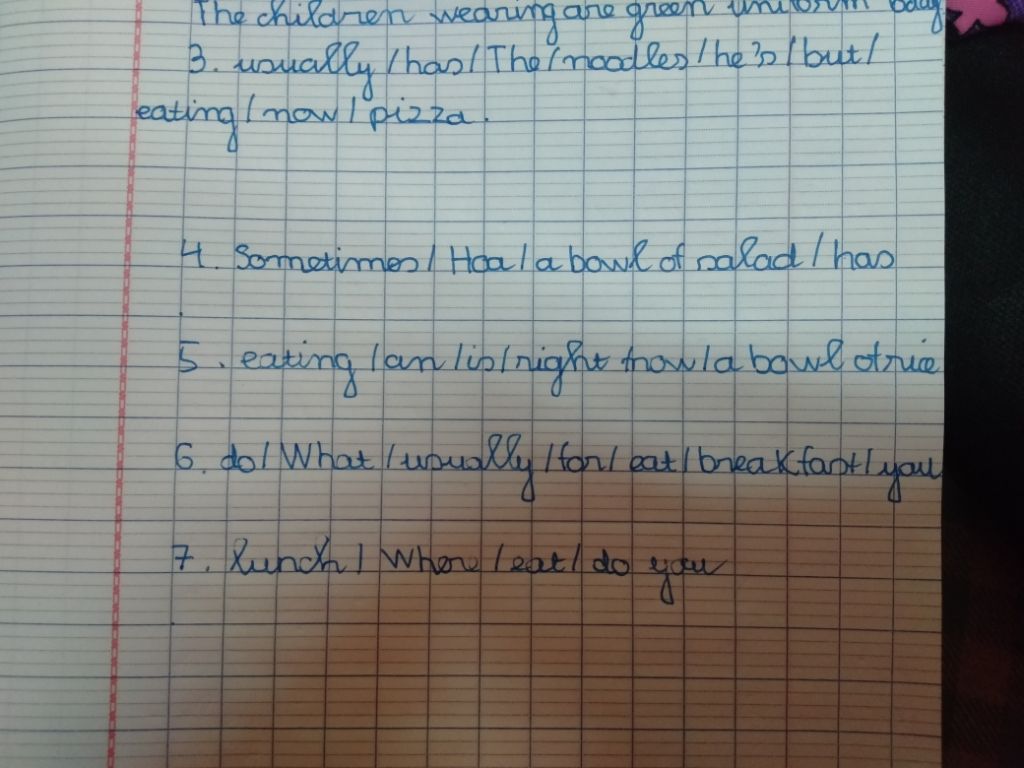 The children wearing are green uniform
3. usually / has / The / noodles / he's / but /
eating / now / pizza.
4. Sometimes / Hoa / a bowl of salad / has
5. eating / an / is / right now / a bowl of rice
6. do / What / usually / for / eat / breakfast / you
7. lunch / Where / eat / do you